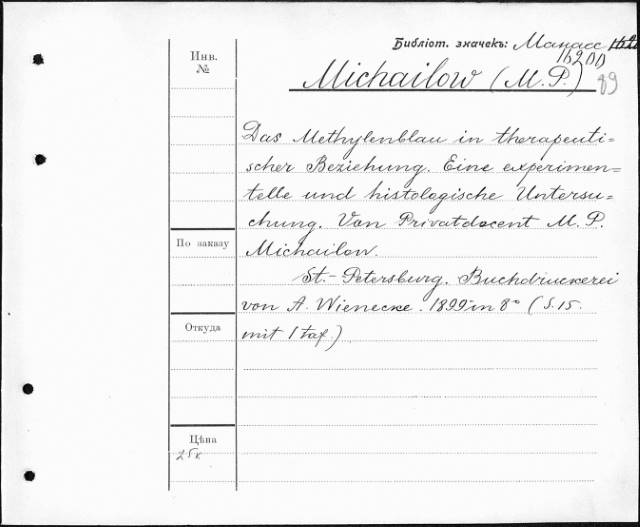 Библіот. значекъ: Манасс
16200
Инв.
№
Michailow (M. P.) 89
Das Methylenblau in therapeuti=
scher Beziehung. Eine experimen=
telle und histologische Untersu=
chung. Von Privatdocent M. P.
По заказу
Michailow.
St.-Petersburg. Buchdruckerei
von A. Wienecke. 1899 in 8° (S. 15.
Откуда
mit 1 taf.)
Цѣна
25к